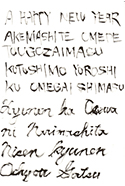 A HAPPY NEW YEAR
AKEMASHITE OMEDE
TOUGOZAIMASU
KOTOSHIMO YOROSHI
KU ONEGAI SHIMASU
Kyunen ha Osewa
ni Narimashita
Nisen kyunen
Ichigatsu Gatsu